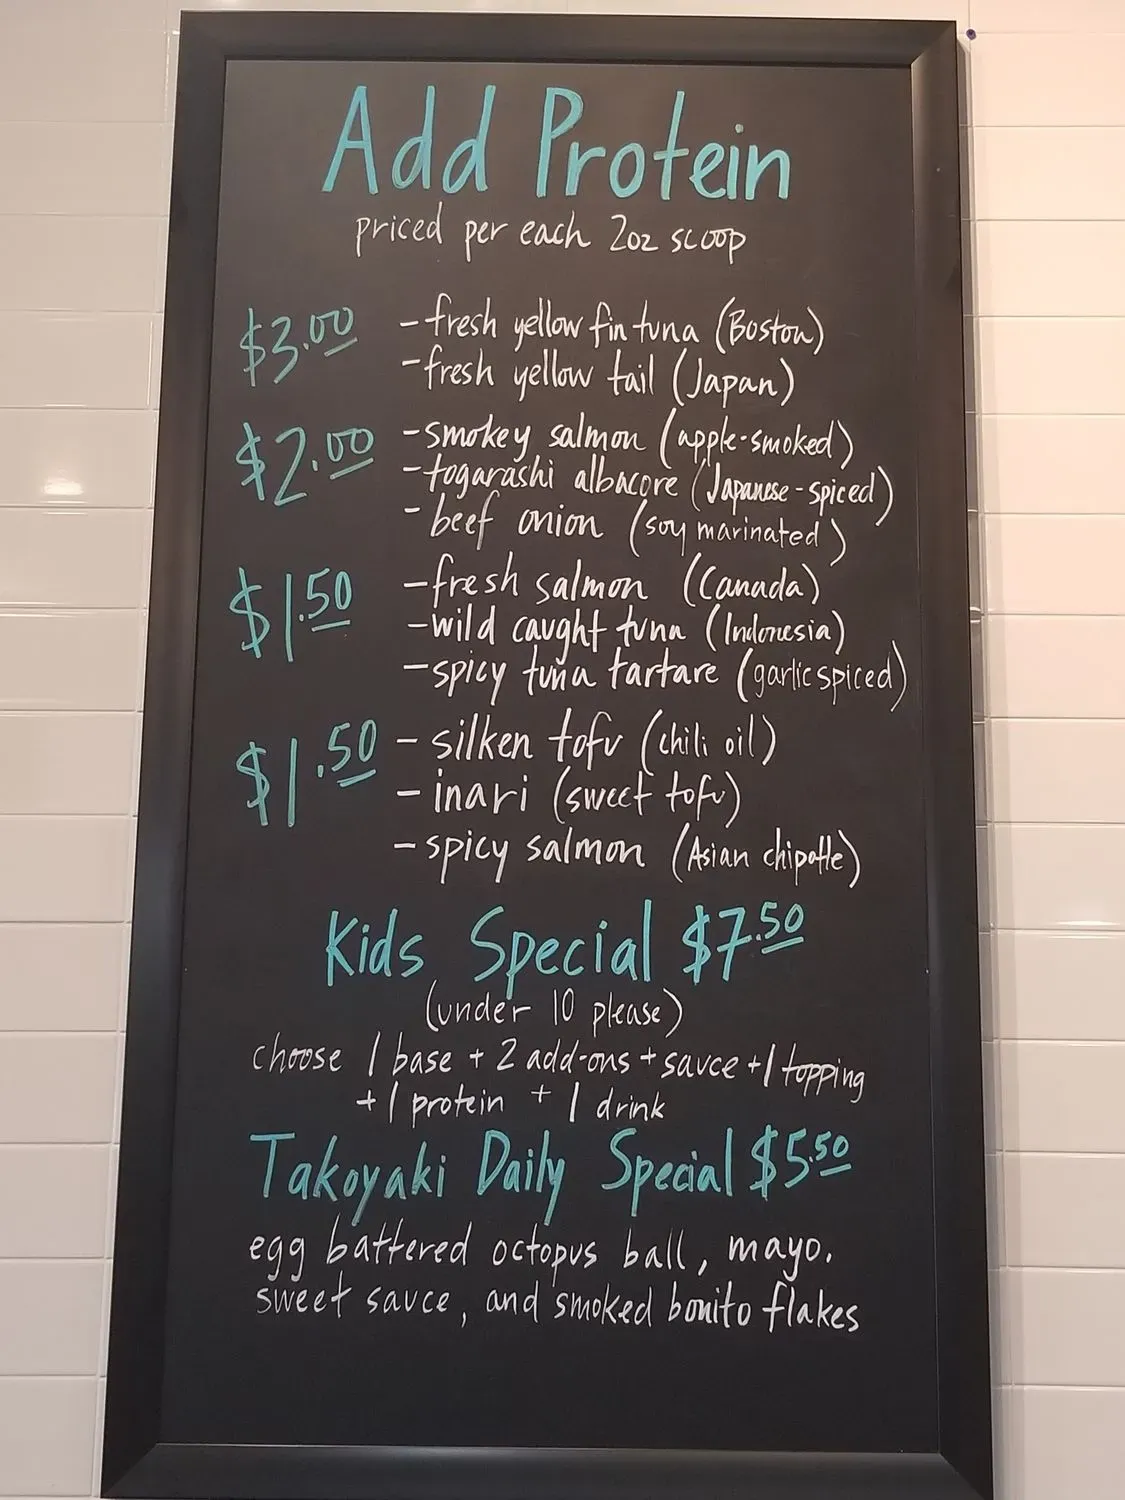 Add Protein
priced per each 2oz scoop
$3.00 - fresh yellow fin tuna (Boston)
- fresh yellow tail (Japan)
$2.00 - smokey salmon (apple-smoked)
- togarashi albacore (Japanese-spiced)
- beef onion (soy marinated)
$1.50 - fresh salmon (Canada)
- wild caught tuna (Indonesia)
- spicy tuna tartare (garlic spiced)
$1.50 - silken tofu (chili oil)
- inari (sweet tofu)
- spicy salmon (Asian chipotle)
Kids Special $7.50
(under 10 please)
choose 1 base + 2 add-ons + sauce + 1 topping
+ 1 protein + 1 drink
Takoyaki Daily Special $5.50
egg battered octopus ball, mayo.
sweet sauce, and smoked bonito flakes